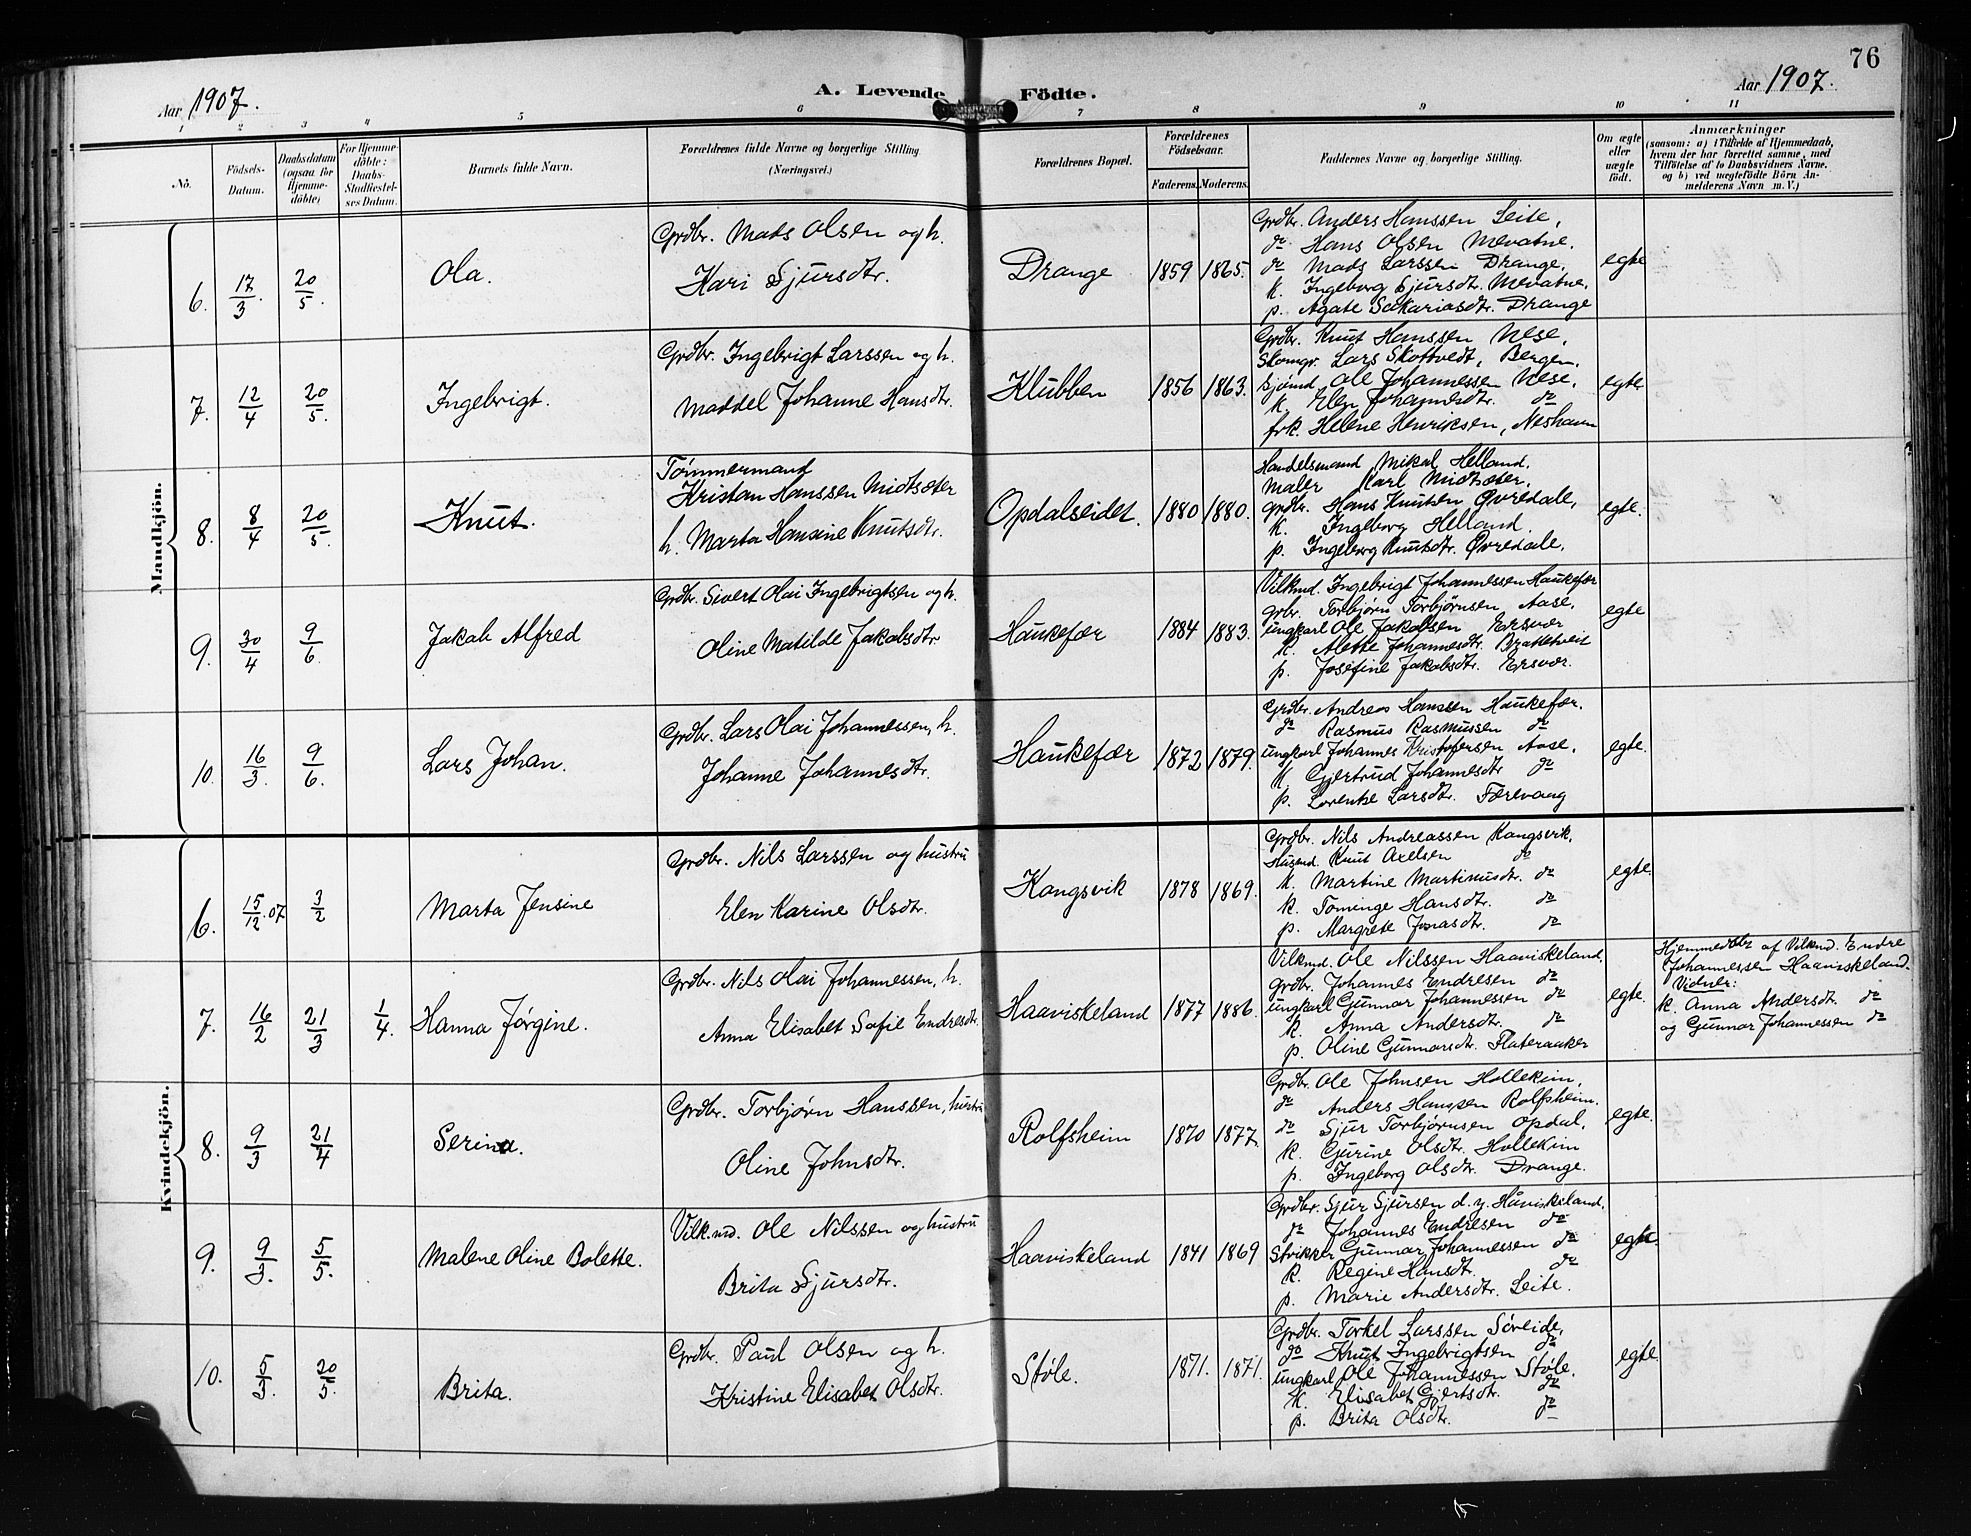 76
Aar 1907.
A. Levende Födte.
Aar 1907.
1 2 3 4 5 6 7 8 9 10 11
No.
Födsels-Datum.
Daabsdatum (ogsaa for Hjemme-döbte)
For Hjemme-döbte: Daabs-Stadfæstel-ses Datum.
Barnets fulde Navn.
Forældrenes fulde Navne og borgerlige Stilling (Næringsvei.)
Forældrenes Bopæl.
Forældrenes Födselsaar.
Faderens. Moderens.
Faddernes Navne og borgerlige Stilling.
Om ægte eller uægte födt.
Anmærkninger
(saasom: a) i Tilfælde af Hjemmedaab,
hvem der har forrettet samme, med
Tilföielse af to Daabsvidners Navne.
og b) ved uægtefödte Börn An-
melderens Navn m. V.)
Mandkjön.
6. 17/3. 20/5 Ola.
Grdbr. Mads Olsen og h.
Kari Sjursdtr.
Drange 1859 1865.
Grdbr. Anders Hanssen Leite,
do Hans Olsen Mevatne.
do Mads Larssen Drange.
k. Ingeborg Sjursdtr. Mevatne.
p. Agate Sakariasdtr. Drange
egte
7. 12/4 20/5. Ingebrigt.
Grdbr. Ingebrigt Larssen og h.
Maddel Johanne Hansdtr.
Klubben 1856 1863.
Grdbr. Knut Hanssen Nese,
Skomgr. Lars Skottvedt, Bergen,
Sjömd. Ole Johannessen Nese.
k. Elen Johannesdtr. do
frk. Helene Henriksen, Neshavn
egte
8. 8/4 20/5. Knut.
Tømmermand
Kristan Hanssen Midtsæter
h. Marta Hansine Knutsdtr.
Opdalseidet. 1880 1880.
Handelsmand Mikal Helland.
Maler Karl Midtsæter.
grdbr. Hans Knutsen Øvredale,
k. Ingeborg Helland.
p. Ingeborg Knutsdtr. Øvredale.
egte.
9. 30/4 9/6. Jakob Alfred
Grdbr. Sivert Olai Ingebrigtsen og h.
Oline Matilde Jakobsdtr.
Haukefær 1884 1883.
Vilkmd. Ingebrigt Johannessen Haukefær
grbr. Torbjørn Torbjørnsen Aase.
ungkarl Ole Jakobsen Ersvær
k. Alette Johannesdtr. Brattetveit
p. Josefine Jakobsdtr. Ersvær.
egte
10. 16/3. 9/6. Lars Johan.
Grdbr. Lars Olai Johannessen, h.
Johanne Johannesdtr.
Haukefær 1872 1879.
Grdbr. Andreas Hanssen Haukefær.
do Rasmus Rasmussen do
ungkarl Johannes Kristofersen Aase.
k. Gjertrud Johannesdtr do
p. Lorentse Larsdtr. Færevaag
egte.
Kvindekjön.
6. 15/12.07 3/2 Marta Jensine
Grdbr. Nils Larssen og hustru
Elen Karine Olsdtr.
Kongsvik 1878 1869.
Grdbr. Nils Andreassen Kongsvik.
Husmd. Knut Axelsen do
k. Martine Martinusdtr. do
k. Tominge Hansdtr. do
p. Margrete Jonasdtr. do
egte.
7. 16/2 21/3 1/4. Hanna Jørgine.
Grdbr. Nils Olai Johannessen, h.
Anna Elisabet Sofie Endresdtr.
Haaviskeland 1877 1886.
Vilkmd. Ole Nilssen Haaviskeland.
grdbr. Johannes Endresen do
ungkarl Gunnar Johannessen do
k. Anna Andersdtr. do
p. Oline Gunnarsdtr. Flateraaker
egte.
Hjemmedøbt af Vilkmd. Endre
Johannessen Haaviskeland.
Vidner:
k. Anna Andersdt. do
og Gunnar Johannessen do
8. 9/3 21/4 Serina.
Grdbr. Torbjørn Hanssen, hustru
Oline Johnsdtr.
Rolfsheim 1870 1877.
Grdbr. Ole Johnsen Hollekim.
do Anders Hanssen Rolfsheim.
do Sjur Torbjørnsen Opdal.
k. Gurine Olsdtr. Hollekim
p. Ingeborg Olsdtr. Drange.
egte.
9. 9/3. 5/5. Malene Oline Bolette.
Vilk.md. Ole Nilssen og hustru
Brita Sjursdtr.
Haaviskeland 1841 1869
Grdbr. Sjur Sjursen d. y. Håviskeland.
do Johannes Endresen do
Strikker Gunnar Johannessen do
k. Regine Hansdt. do
p. Marie Andersdtr. Leite.
egte.
10. 5/3. 20/5. Brita.
Grdbr. Paul Olsen og h.
Kristine Elisabet Olsdtr.
Støle. 1871. 1871.
Grdbr. Torkel Larssen Söreide.
do Knut Ingebrigtsen do
ungkarl Ole Johannessen Støle.
k. Elisabet Gjertsdt. do
p. Brita Olsdtr. do
egte.